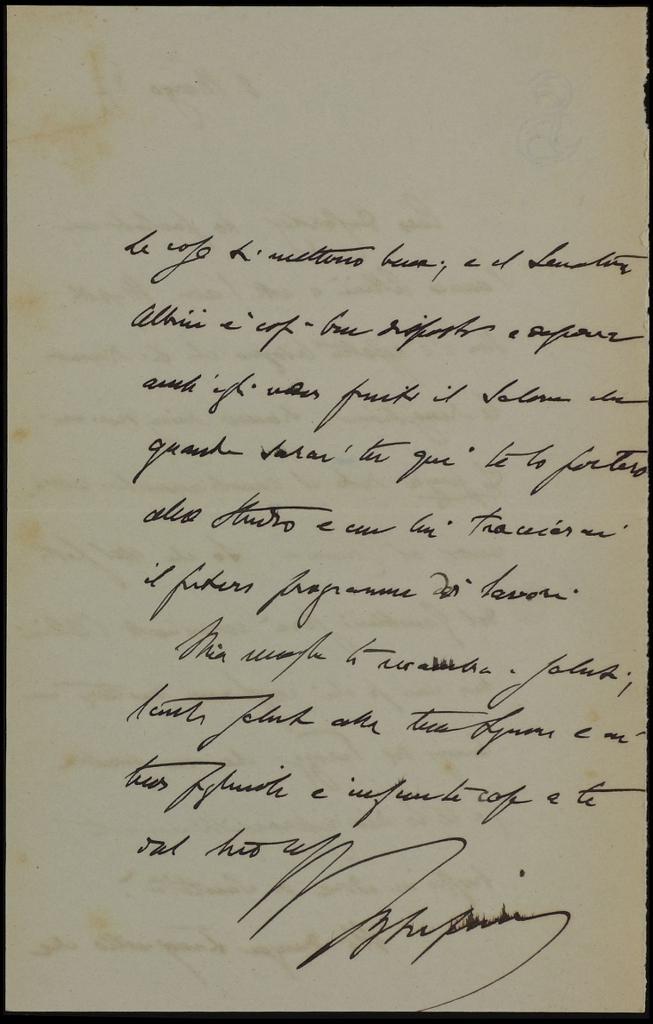 Le cose si mettono bene; e il Senatore
Albini è così ben disposto e
anch'egli vuol finito il Salone che
quando sarai tu qui te lo porterò
allo Studio e con lui traccierai
il futuro programma di lavori.
Mia moglie ti manda i saluti;
tanti saluti alla tua Signora e ai
tuoi figliuoli e infinite cose a te
dal tuo aff